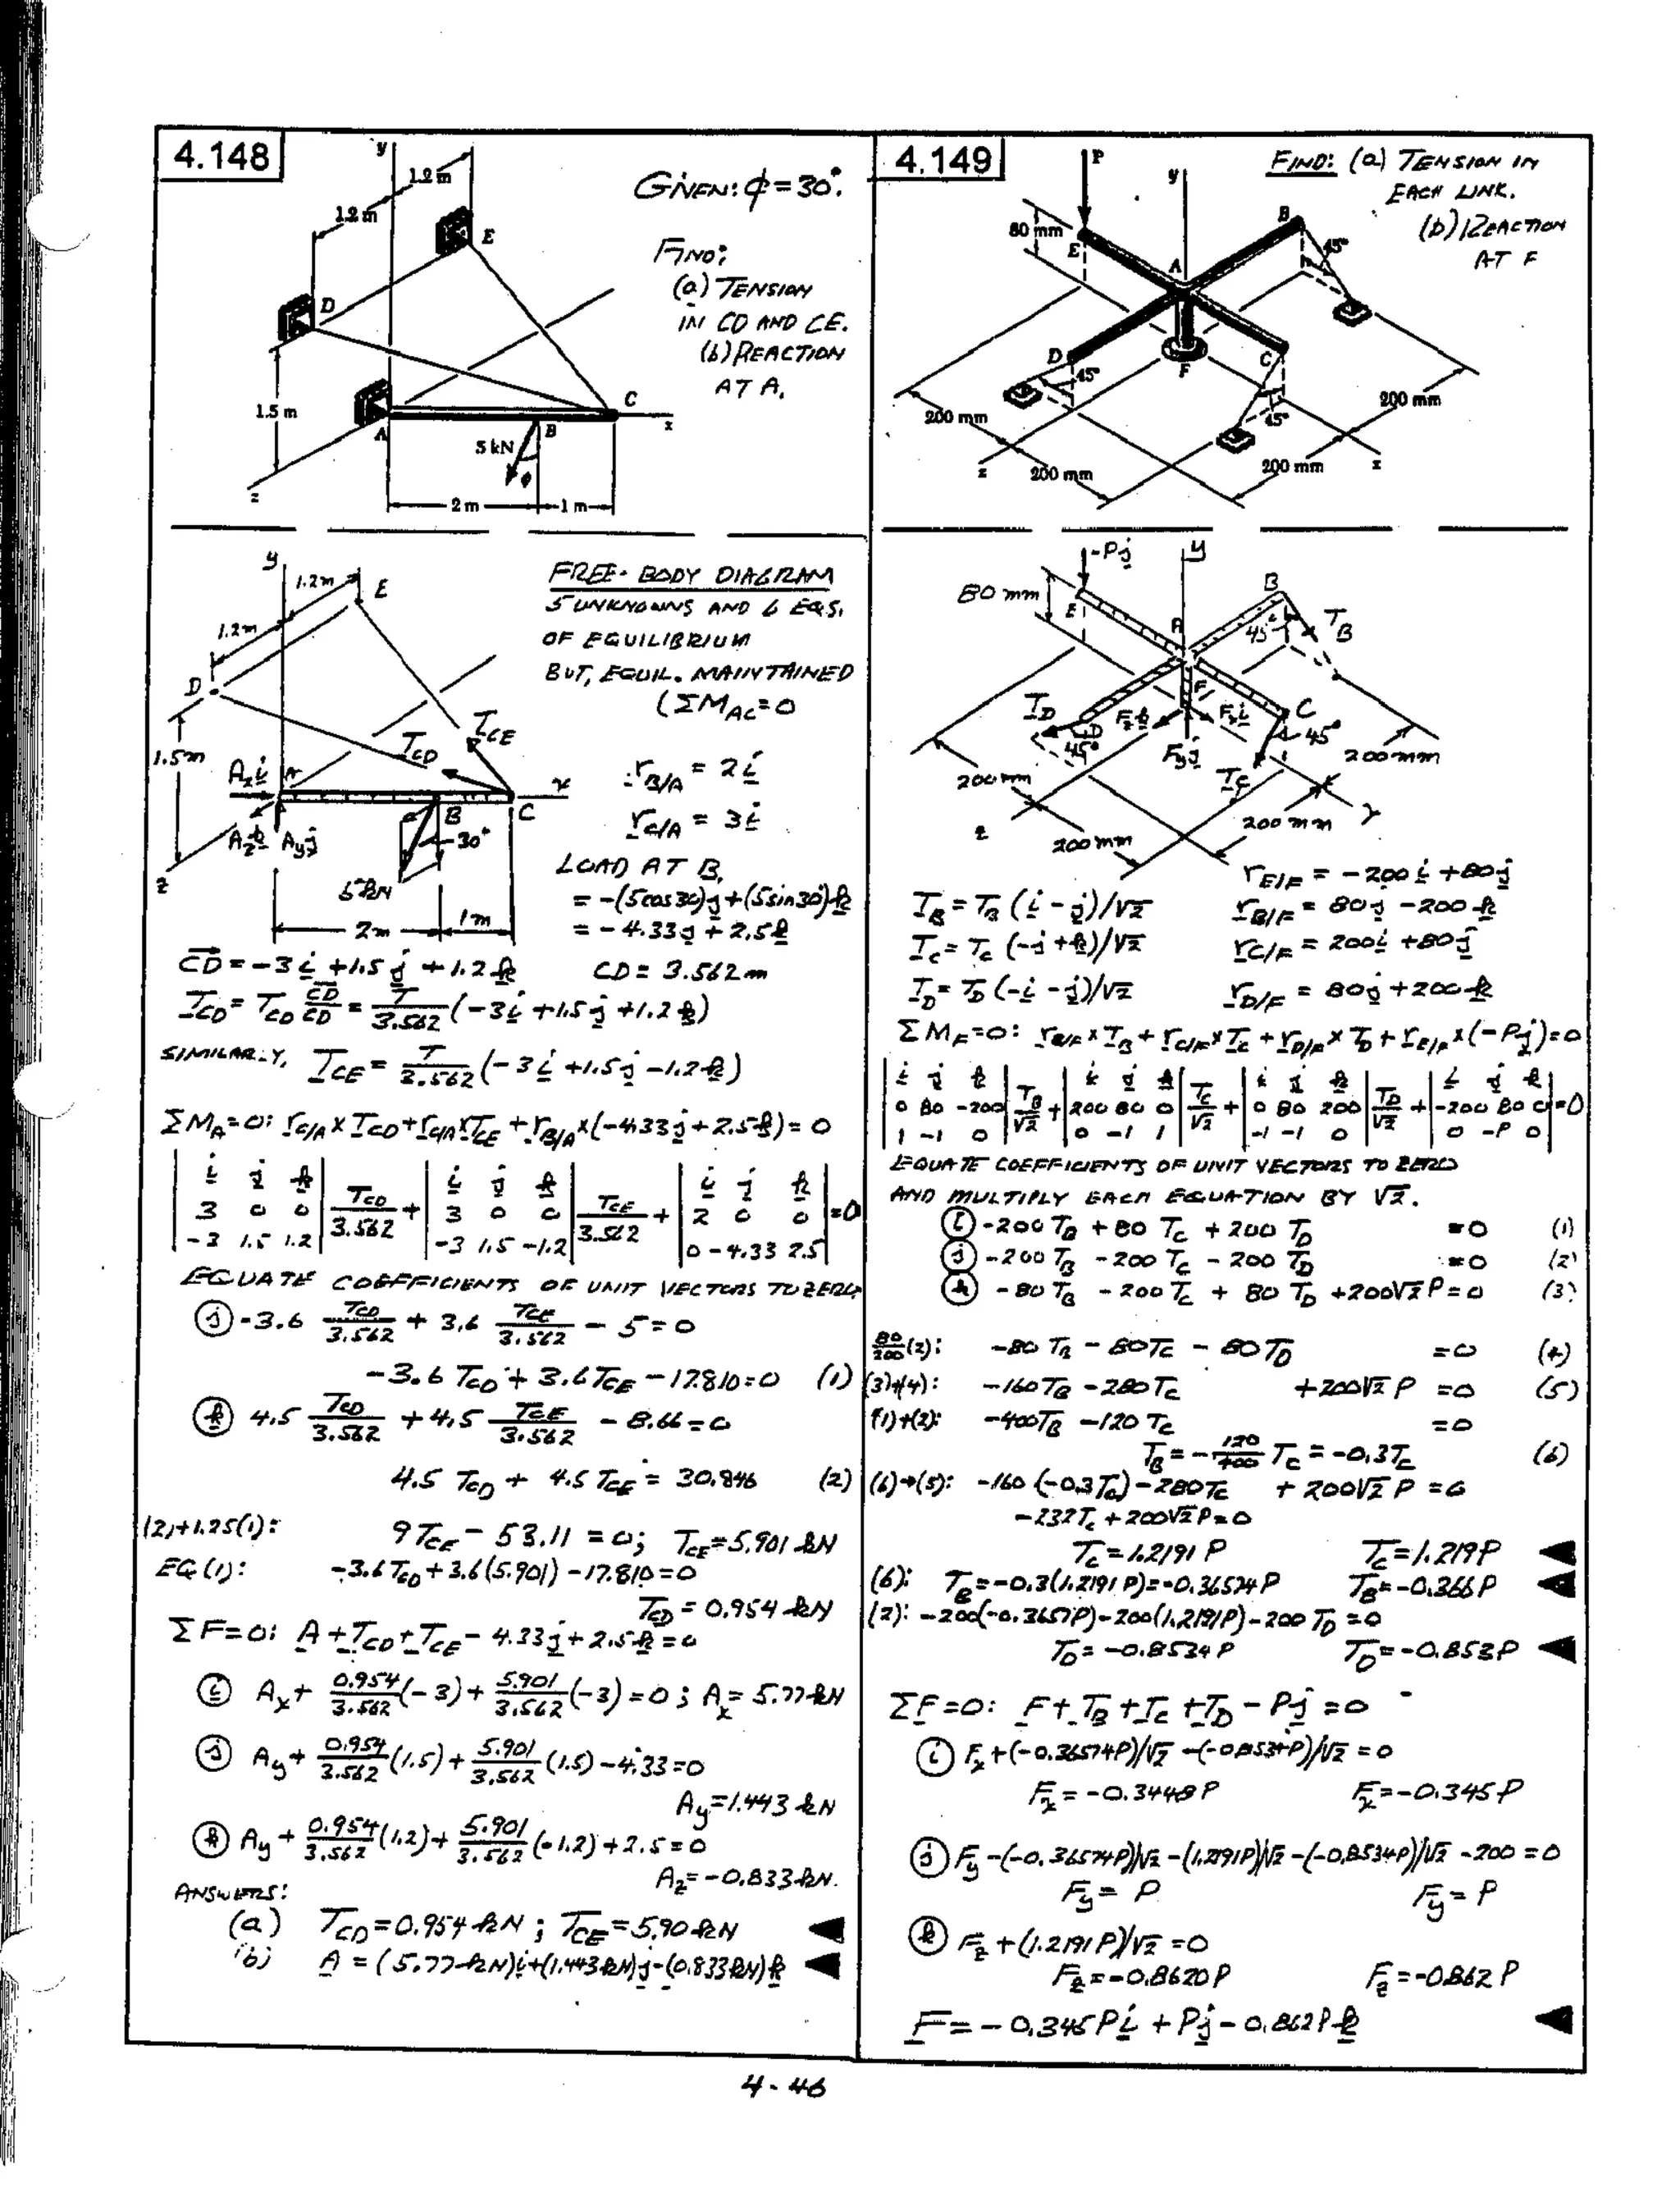 4.148
GIVEN: φ = 30°.
FIND:
(a) TENSION
IN CD AND CE.
(b) REACTION
AT A.
y
1.2 m
1.2 m
E
D
1.5 m
A
B
C
x
5 kN
φ
z
2 m
1 m
y
1.2m
E
1.2m
D
1.5m
T_CD
T_CE
A_x i
A
A_z k
A_y j
B
C
x
30°
5 kN
z
2m
1m
FREE-BODY DIAGRAM
5 UNKNOWNS AND 6 EQS.
OF EQUILIBRIUM
BUT, EQUIL. MAINTAINED
(ΣM_AC = 0
r_B/A = 2i
r_C/A = 3i
LOAD AT B,
= -(5cos30)j + (5sin30)k
= -4.33j + 2.5k
CD = -3i + 1.5j + 1.2k CD = 3.562 m
T_CD = T_CD CD/CD = T/3.562 (-3i + 1.5j + 1.2k)
SIMILARLY, T_CE = T/3.562 (-3i + 1.5j - 1.2k)
ΣM_A = 0: r_C/A × T_CD + r_C/A × T_CE + r_B/A × (-4.33j + 2.5k) = 0
| i j k | | i j k | | i j k |
| 3 0 0 | T_CD/3.562 + | 3 0 0 | T_CE/3.562 + | 2 0 0 | = 0
| -3 1.5 1.2 | | -3 1.5 -1.2 | | 0 -4.33 2.5 |
EQUATE COEFFICIENTS OF UNIT VECTORS TO ZERO
(j) -3.6 T_CD/3.562 + 3.6 T_CE/3.562 - 5 = 0
-3.6 T_CD + 3.6 T_CE - 17.810 = 0 (1)
(k) 4.5 T_CD/3.562 + 4.5 T_CE/3.562 - 8.66 = 0
4.5 T_CD + 4.5 T_CE = 30.846 (2)
(2)+1.25(1): 9T_CE - 53.11 = 0; T_CE = 5.901 kN
EQ (1): -3.6T_CD + 3.6(5.901) - 17.810 = 0
T_CD = 0.954 kN
ΣF = 0: A + T_CD + T_CE - 4.33j + 2.5k = 0
(i) A_x + 0.954/3.562 (-3) + 5.901/3.562 (-3) = 0; A_x = 5.77 kN
(j) A_y + 0.954/3.562 (1.5) + 5.901/3.562 (1.5) - 4.33 = 0
A_y = 1.443 kN
(k) A_y + 0.954/3.562 (1.2) + 5.901/3.562 (-1.2) + 2.5 = 0
A_z = -0.833 kN.
ANSWERS:
(a) T_CD = 0.954 kN; T_CE = 5.90 kN
(b) A = (5.77 kN)i + (1.443 kN)j - (0.833 kN)k
4.149
FIND: (a) TENSION IN
EACH LINK.
(b) REACTION
AT F
P
y
80 mm
E
A
B
45°
D
45°
F
C
45°
200 mm
200 mm
z
200 mm
200 mm
x
-Pj
y
80 mm
E
A
B
45°
T_B
T_D
D
45°
F
F_z k
F_x i
F_y j
C
45°
T_C
200 mm
200 mm
z
200 mm
200 mm
x
r_E/F = -200i + 80j
T_B = T_B (i - j)/√2 r_B/F = 80j - 200k
T_C = T_C (-j + k)/√2 r_C/F = 200i + 80j
T_D = T_D (-i - j)/√2 r_D/F = 80j + 200k
ΣM_F = 0: r_B/F × T_B + r_C/F × T_C + r_D/F × T_D + r_E/F × (-Pj) = 0
| i j k | | i j k | | i j k | | i j k |
| 0 80 -200 | T_B/√2 + | 200 80 0 | T_C/√2 + | 0 80 200 | T_D/√2 + | -200 80 0 | = 0
| 1 -1 0 | | 0 -1 1 | | -1 -1 0 | | 0 -P 0 |
EQUATE COEFFICIENTS OF UNIT VECTORS TO ZERO
AND MULTIPLY EACH EQUATION BY √2.
(i) -200 T_B + 80 T_C + 200 T_D = 0 (1)
(j) -200 T_B - 200 T_C - 200 T_D = 0 (2)
(k) -80 T_B - 200 T_C + 80 T_D + 200√2 P = 0 (3)
80/200 (2): -80 T_B - 80 T_C - 80 T_D = 0 (4)
(3)+(4): -160 T_B - 280 T_C + 200√2 P = 0 (5)
(1)+(2): -400 T_B - 120 T_C = 0
T_B = -120/400 T_C = -0.3T_C (6)
(6)→(5): -160 (-0.3T_C) - 280T_C + 200√2 P = 0
-232T_C + 200√2 P = 0
T_C = 1.2191 P T_C = 1.219P
(6): T_B = -0.3(1.2191 P) = -0.36574P T_B = -0.366P
(2): -200(-0.3657P) - 200(1.2191P) - 200 T_D = 0
T_D = -0.8534 P T_D = -0.853P
ΣF = 0: F + T_B + T_C + T_D - Pj = 0
(i) F_x + (-0.36574P)/√2 - (-0.8534P)/√2 = 0
F_x = -0.3448 P F_x = -0.345 P
(j) F_y - (-0.36574P)/√2 - (1.2191P)/√2 - (-0.8534P)/√2 - 200 = 0
F_y = P F_y = P
(k) F_z + (1.2191 P)/√2 = 0
F_z = -0.8620 P F_z = -0.862 P
F = -0.345 P i + P j - 0.862 P k
4-46